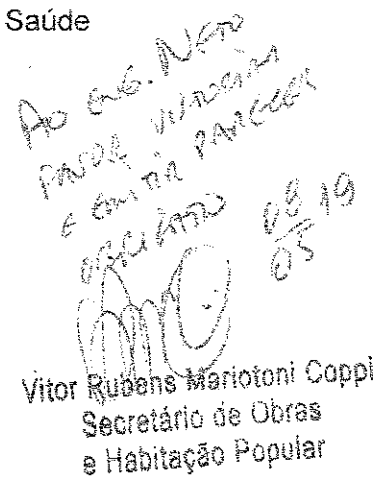 Saúde
Ao eng. Neto
Favor vistoriar
e emitir parecer
08 19
05
Vitor Rubens Mariotoni Coppi
Secretário de Obras
e Habitação Popular